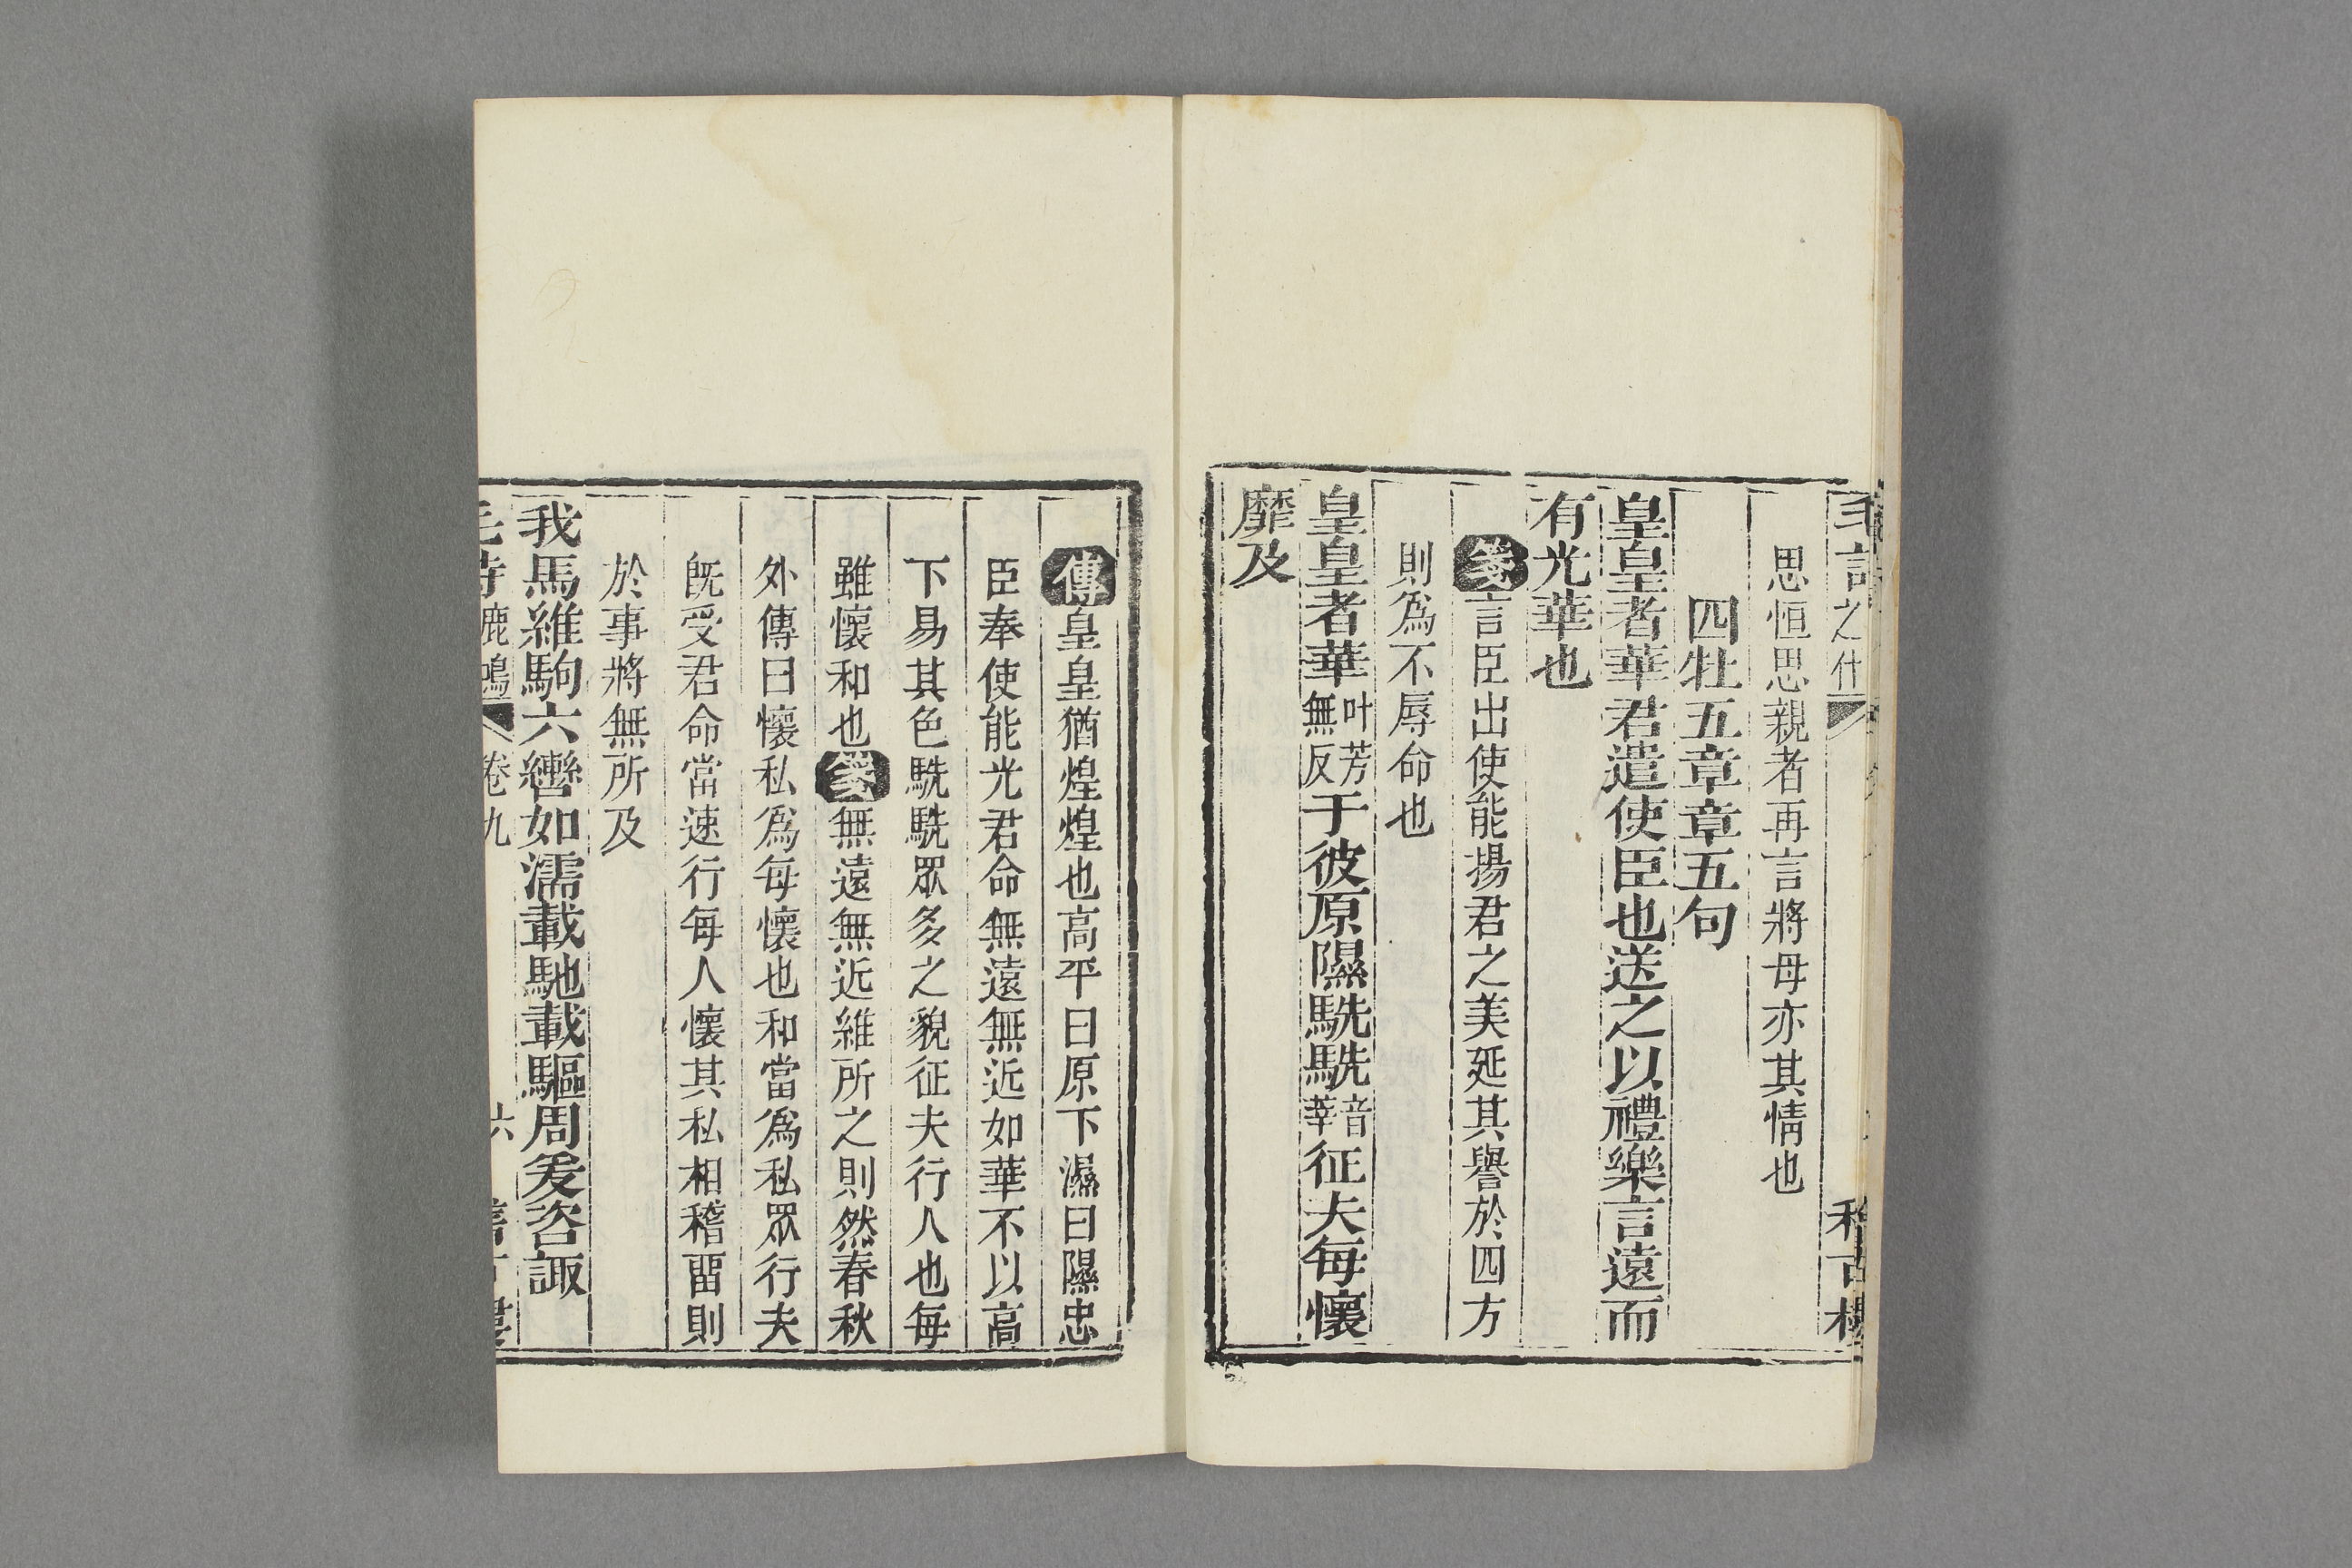 毛詩之什
稽古樓
思恒思親者再言將母亦其情也
四牡五章章五句
皇皇者華君遣使臣也送之以禮樂言遠而
有光華也
箋言臣出使能揚君之美延其譽於四方
則爲不辱命也
皇皇者華叶芳無反于彼原隰駪駪音莘征夫每懷
靡及
傳皇皇猶煌煌也高平曰原下濕曰隰忠
臣奉使能光君命無遠無近如華不以高
下易其色駪駪眾多之貌征夫行人也每
雖懷和也箋無遠無近維所之則然春秋
外傳曰懷私爲每懷也和當爲私眾行夫
旣受君命當速行每人懷其私相稽畱則
於事將無所及
我馬維駒六轡如濡載馳載驅周爰咨諏
毛詩鹿鳴 卷九 六